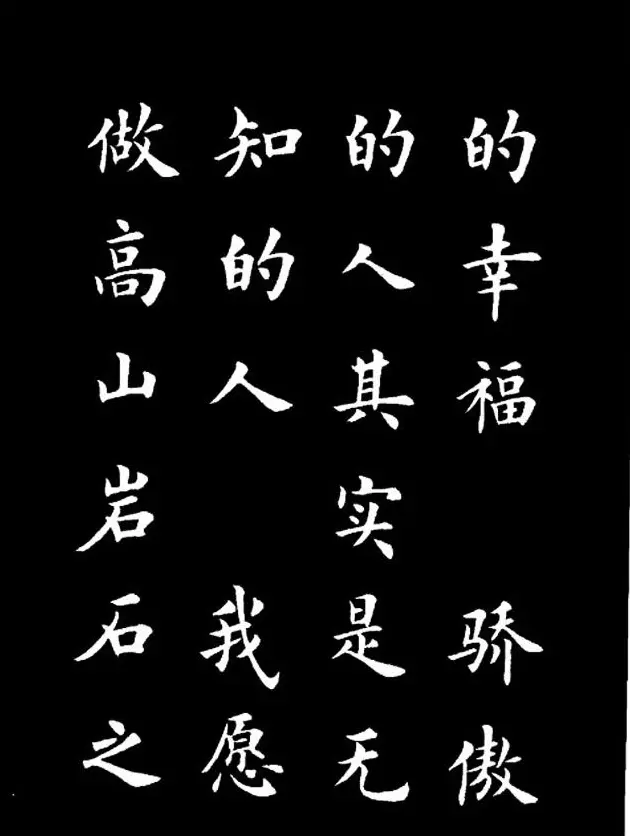 的幸福 骄傲
的人其实是无
知的人 我愿
做高山岩石之